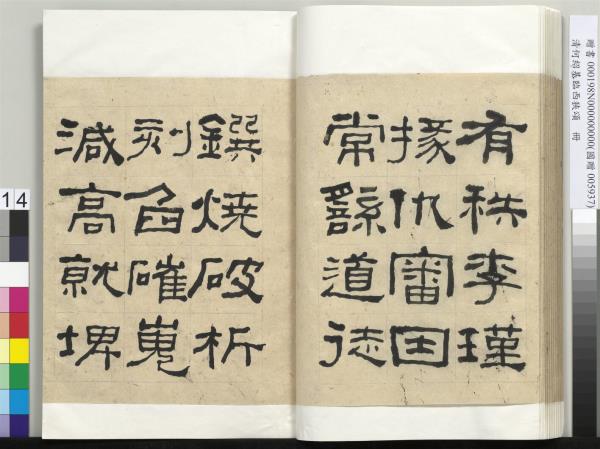 有秩李瑾
掾仇審因
常繇道徒
鐉燒破析
刻臽磪嵬
減高就埤
贈書 000198N000000000(國贈 005937)
清何紹基臨西狹頌 冊
14